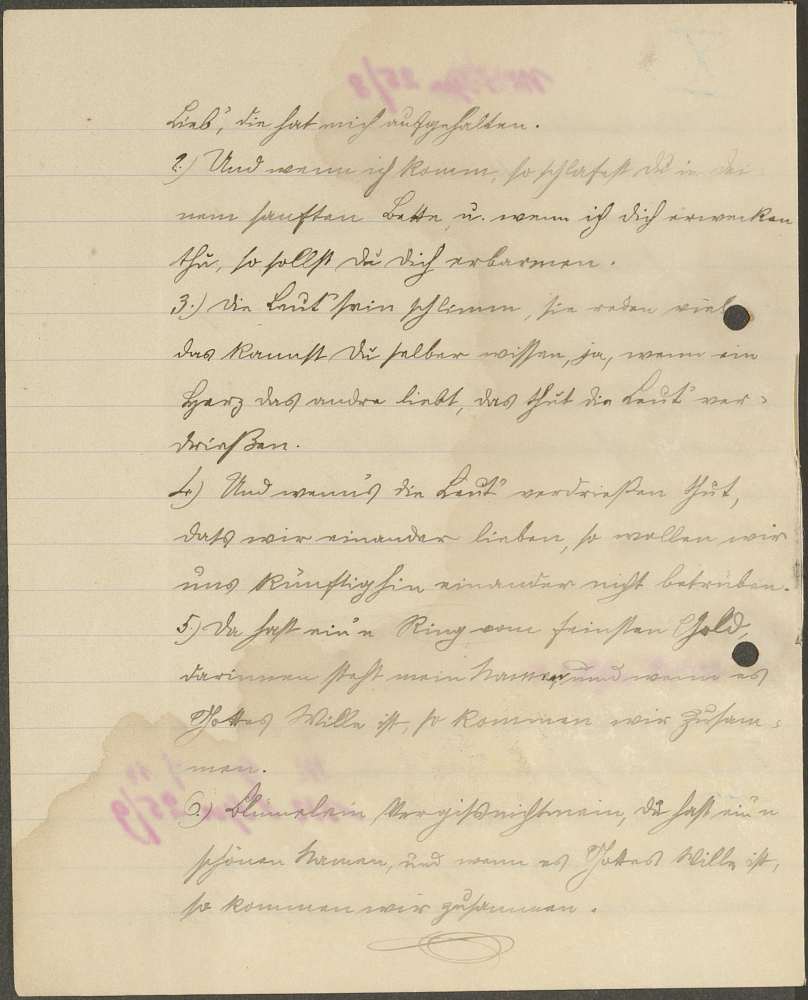 Lieb', die hat mich aufgehalten.
2.) Und wenn ich komm, so schlafest Du in dei
nem sanften Bette, u. wenn ich dich erwecken
thu, so sollst Du dich erbarmen.
3.) Die Leut' sein schlimm, sie reden viel
das kannst Du selber wissen, ja, wenn ein
Herz das andre liebt, das thut die Leut' ver-
drießen.
4.) Und wenn's die Leut' verdrießen thut,
dats wir einander lieben, so wollen wir
uns künftighin einander nicht betrüben.
5.) Da hast ein'n Ring vom feinsten Gold,
darinnen steht mein Namen, und wenn es
Gottes Wille ist, so kommen wir zusam-
men.
6.) Blümelein Vergißnichtmein, Du hast ein'n
schönen Namen, und wenn es Gottes Wille ist,
so kommen wir zusammen.